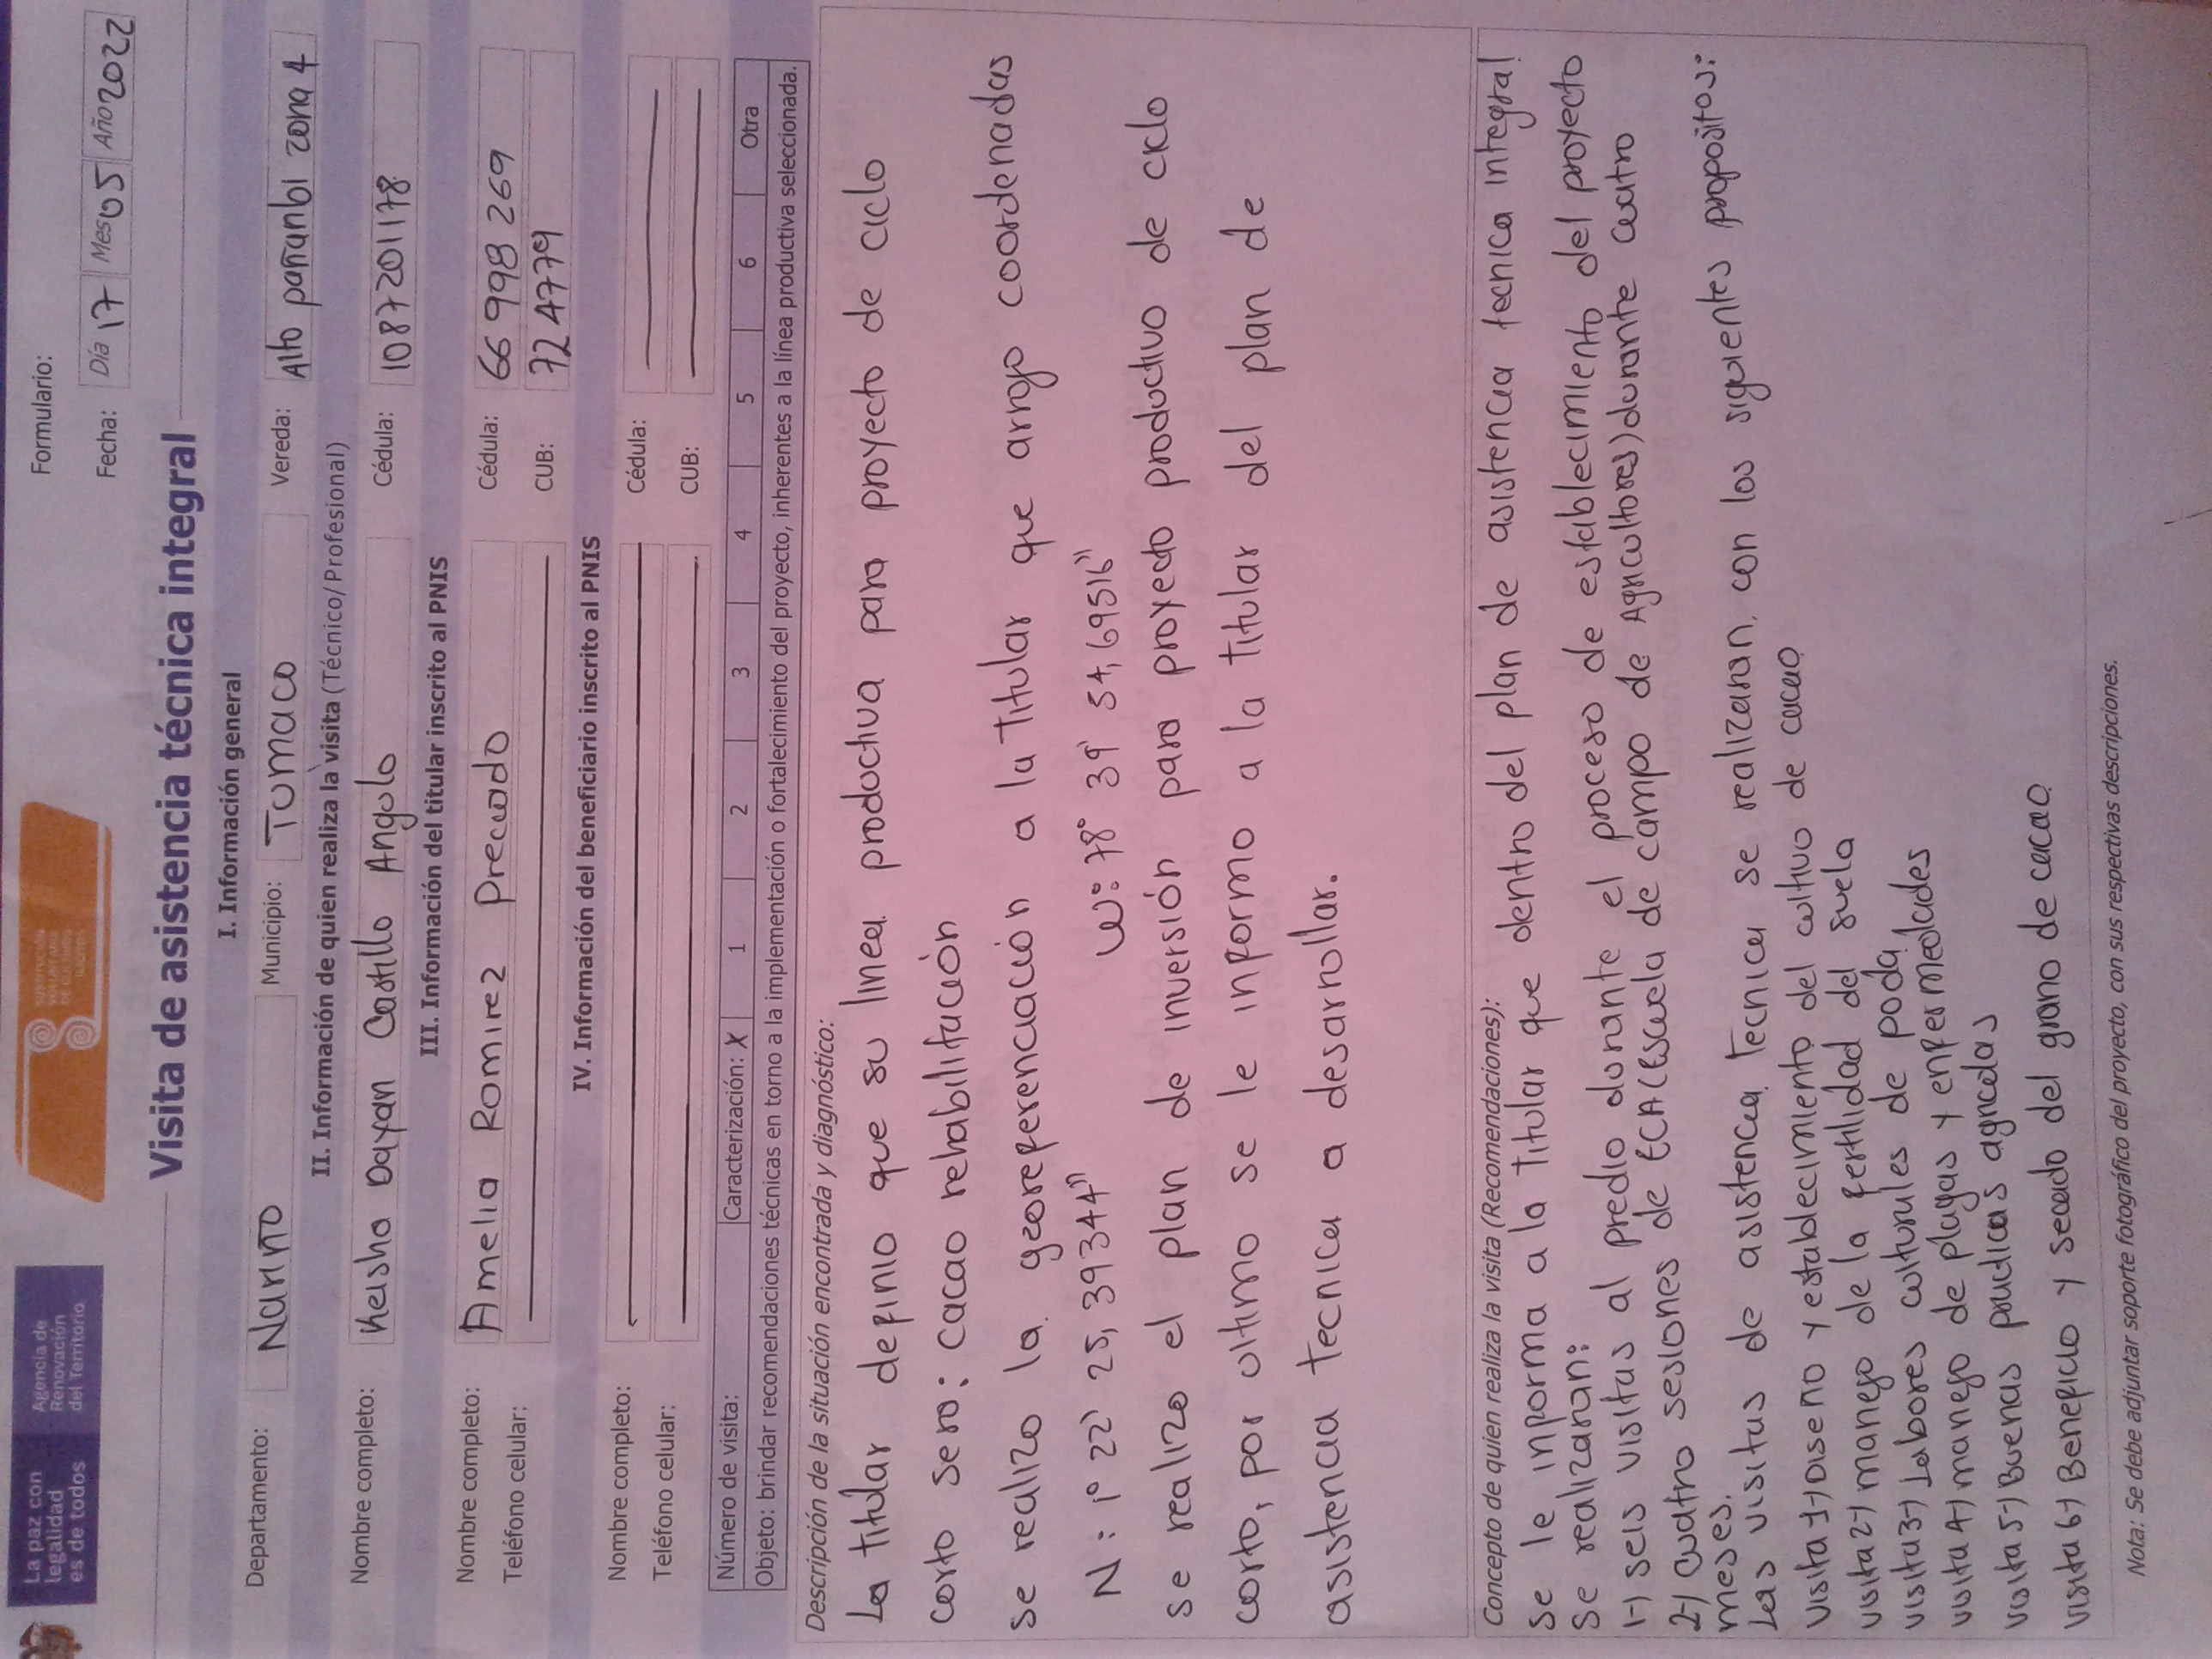 La paz con
legalidad
es de todos
Agencia de
Renovación
del Territorio
SUSTITUCIÓN
VOLUNTARIA
DE CULTIVOS
ILÍCITOS
Formulario:
Fecha: Día 17 Mes 05 Año 2022
Visita de asistencia técnica integral
I. Información general
Departamento: Nariño Municipio: Tumaco Vereda: Alto pañambi zona 4
II. Información de quien realiza la visita (Técnico/Profesional)
Nombre completo: Keisha Dayan Castillo Angulo Cédula: 1087201178
III. Información del titular inscrito al PNIS
Nombre completo: Amelia Ramirez Preciado Cédula: 66 998 269
Teléfono celular: CUB: 7244779
IV. Información del beneficiario inscrito al PNIS
Nombre completo: Cédula:
Teléfono celular: CUB:
Número de visita: Caracterización: X 1 2 3 4 5 6 Otra
Objeto: brindar recomendaciones técnicas en torno a la implementación o fortalecimiento del proyecto, inherentes a la línea productiva seleccionada.
Descripción de la situación encontrada y diagnóstico:
La titular definio que su linea productiva para proyecto de ciclo
corto sera: cacao rehabilitación
se realizo la georeferenciación a la titular que arrojo coordenadas
N: 1° 22' 25,39344" W: 78° 39' 54,69516"
se realizo el plan de inversión para proyecto productivo de ciclo
corto, por ultimo se le informo a la titular del plan de
asistencia tecnica a desarrollar.
Concepto de quien realiza la visita (Recomendaciones):
se le informa a la titular que dentro del plan de asistencia tecnica integral
se realizaran:
1-) seis visitas al predio durante el proceso de establecimiento del proyecto
2-) cuatro sesiones de ECA (Escuela de campo de Agricultores) durante cuatro
meses.
Las visitas de asistencia tecnica se realizaran, con los siguientes propositos:
visita 1-) Diseño y establecimiento del cultivo de cacao
visita 2-) manejo de la fertilidad del suelo
visita 3-) Labores culturales de poda
visita 4-) manejo de plagas y enfermedades
visita 5-) Buenas practicas agricolas
visita 6-) Beneficio y secado del grano de cacao
Nota: Se debe adjuntar soporte fotográfico del proyecto, con sus respectivas descripciones.